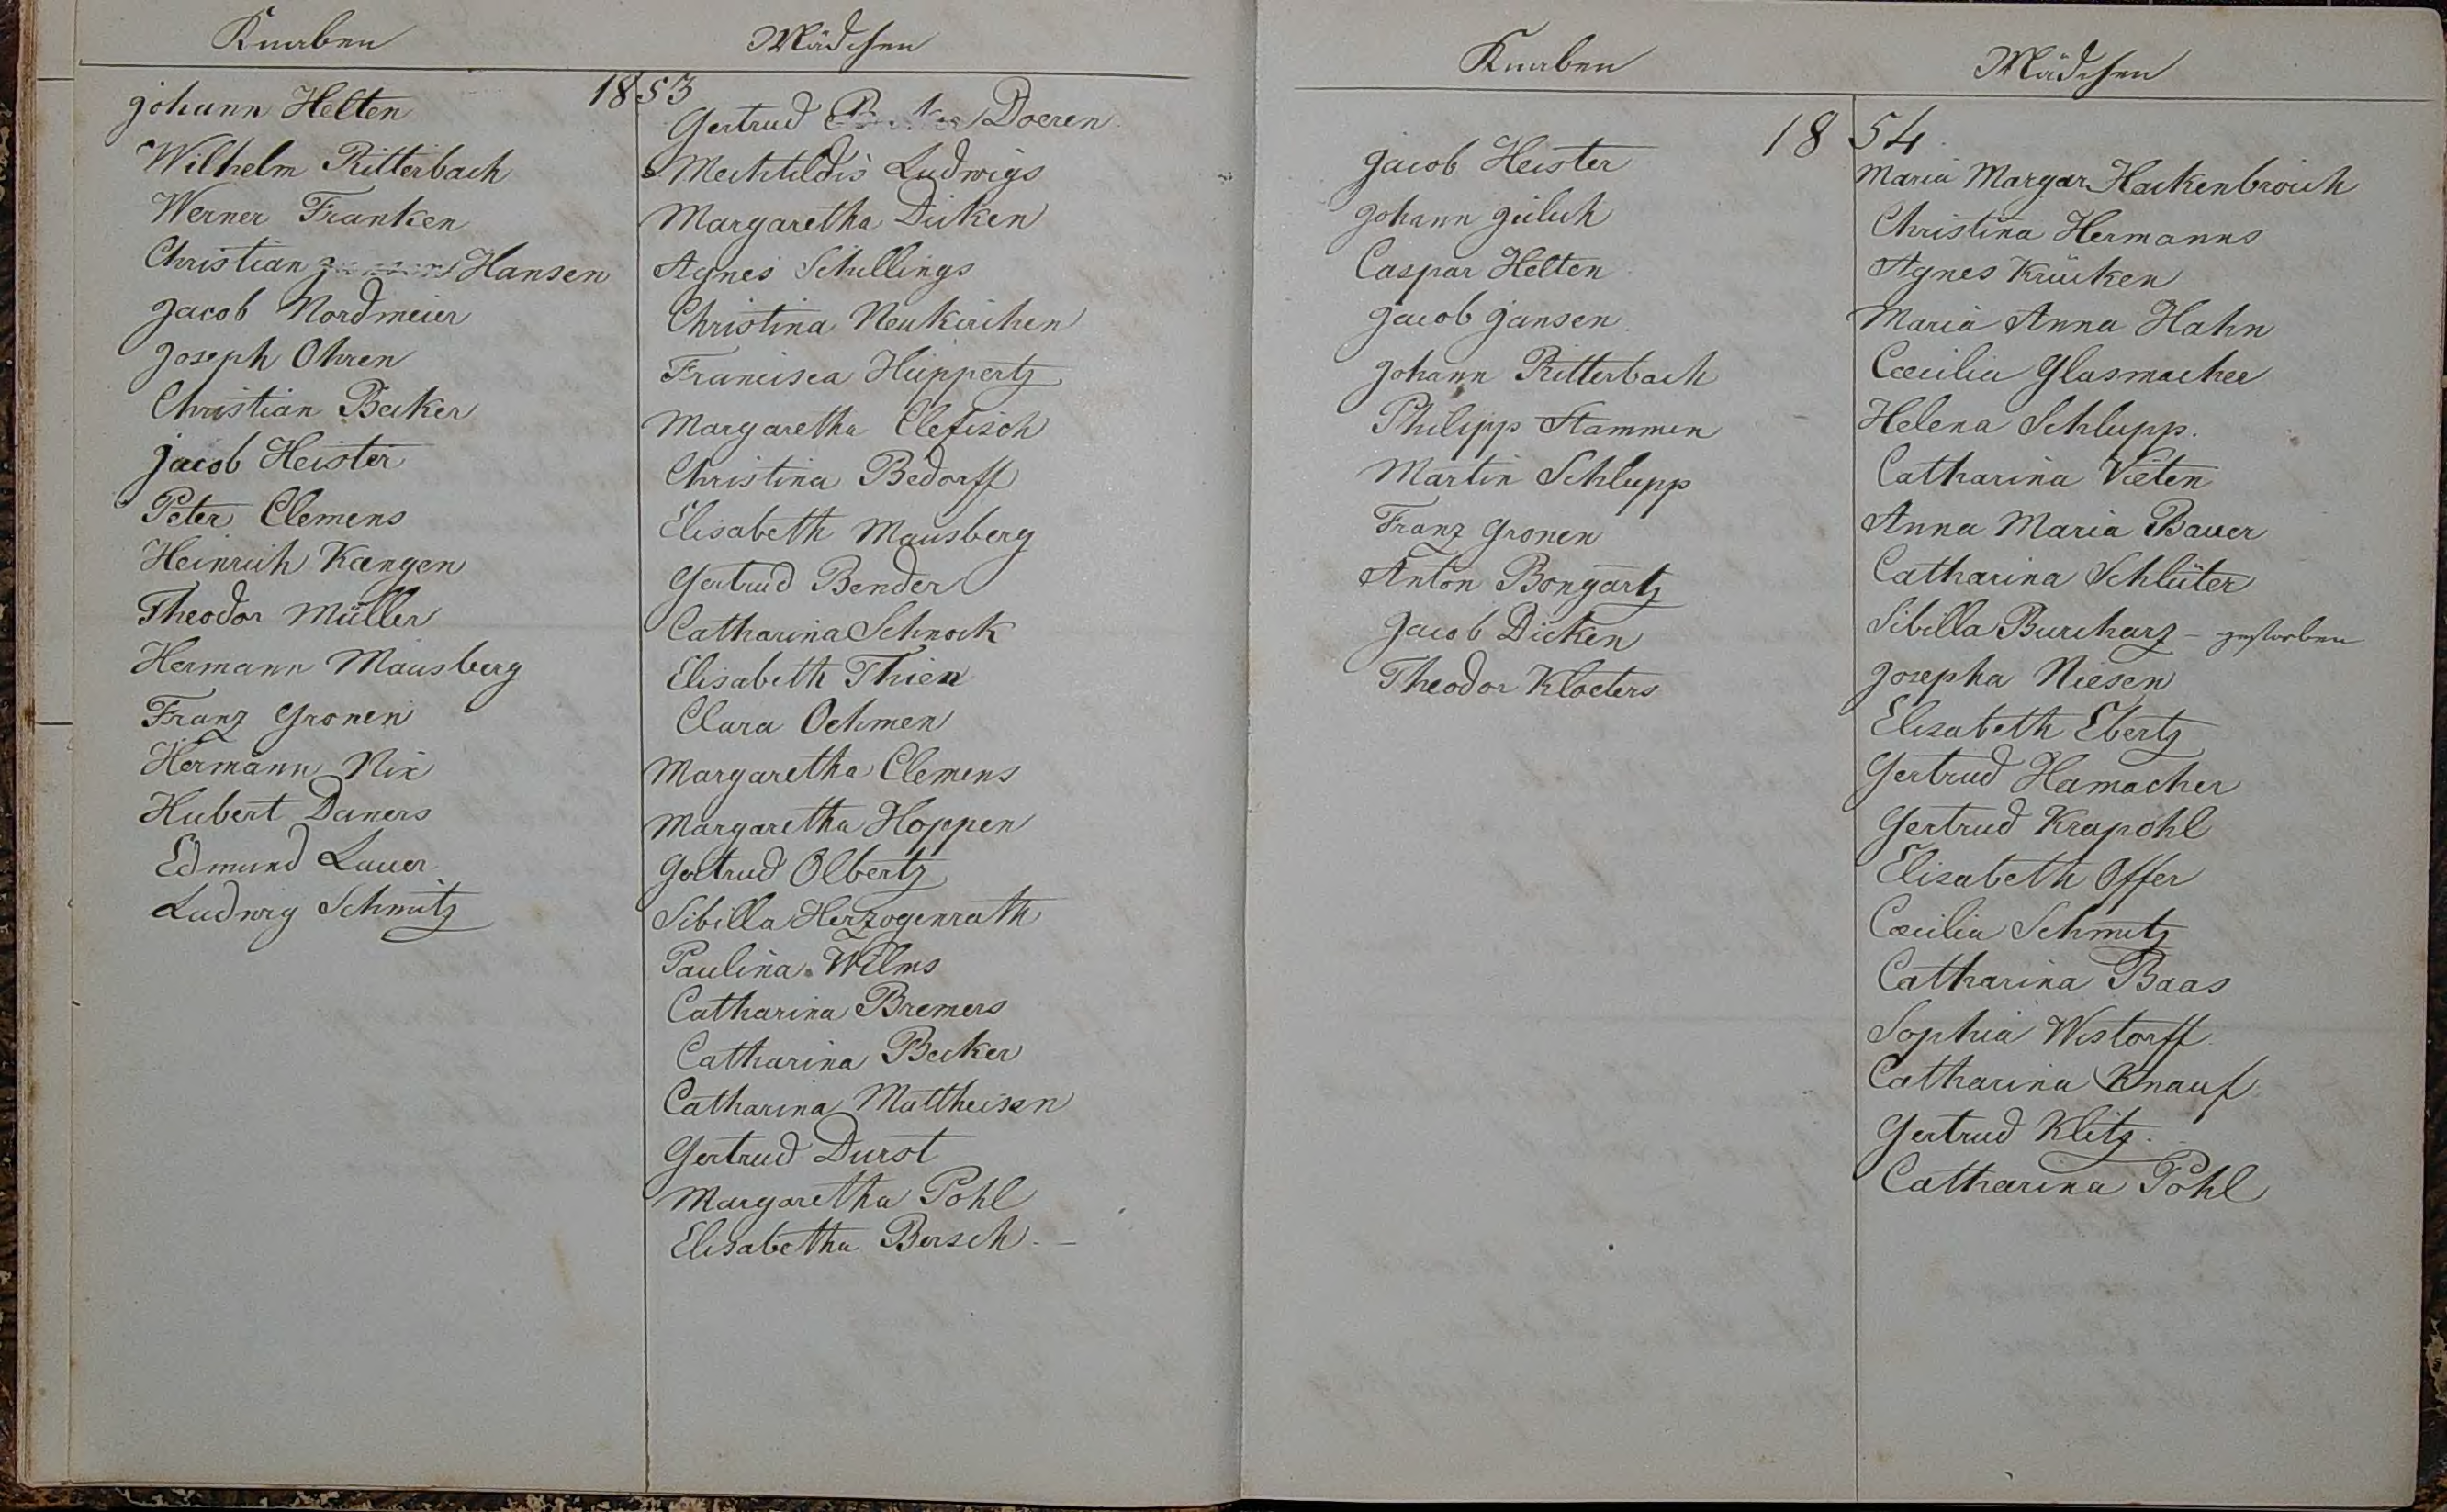 Knaben
Mädchen
1853
Johann Helten
Wilhelm Ritterbach
Werner Franken
Christian Hansen
Jacob Nordmeier
Joseph Ohren
Christian Becker
Jacob Heister
Peter Clemens
Heinrich Kaengen
Theodor Müller
Hermann Mausberg
Franz Gronen
Hermann Nix
Hubert Damers
Edmund Lauer
Ludwig Schmitz
Gertrud Doeren
Mechtildis Ludwigs
Margaretha Dicken
Agnes Schillings
Christina Neukirchen
Francisca Hüppertz
Margaretha Clefisch
Christina Bedorff
Elisabeth Mausberg
Gertrud Bender
Catharina Schnock
Elisabeth Thien
Clara Oehmen
Margaretha Clemens
Margaretha Hoppen
Gertrud Olbertz
Sibilla Herzogenrath
Paulina Wilms
Catharina Bremers
Catharina Becker
Catharina Mattheisen
Gertrud Durst
Margaretha Pohl
Elisabetha Bersch. —
Knaben
Mädchen
1854.
Jacob Heister
Johann Jülich
Caspar Helten
Jacob Jansen
Johann Ritterbach
Philipp Stammen
Martin Schlupp
Franz Gronen
Anton Bongartz
Jacob Dicken
Theodor Kloeters
Maria Margar Hackenbroich
Christina Hermanns
Agnes Krücken
Maria Anna Hahn
Cæcilia Glasmacher
Helena Schlupp.
Catharina Vieten
Anna Maria Bauer
Catharina Schlüter
Sibilla Burcharz – gestorben
Josepha Niesen
Elisabeth Ebertz
Gertrud Hamacher
Gertrud Krapohl
Elisabeth Offer
Cæcilia Schmitz
Catharina Baas
Sophia Wistorff
Catharina Knauf
Gertrud Klitz.
Catharina Pohl